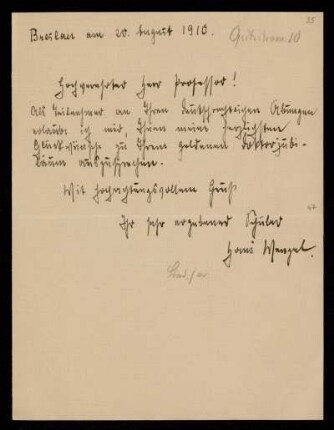 Breslau am 20. August 1910.
35
Hochverehrter Herr Professor!
Als Teilnehmer an Ihren deutschrechtlichen Übungen
erlaube ich mir, Ihnen meine herzlichsten
Glückwünsche zu Ihrem goldenen Doktorjubi-
läum auszusprechen.
Mit hochachtungsvollem Gruß
Ihr sehr ergebener Schüler
Hans Wenzel.